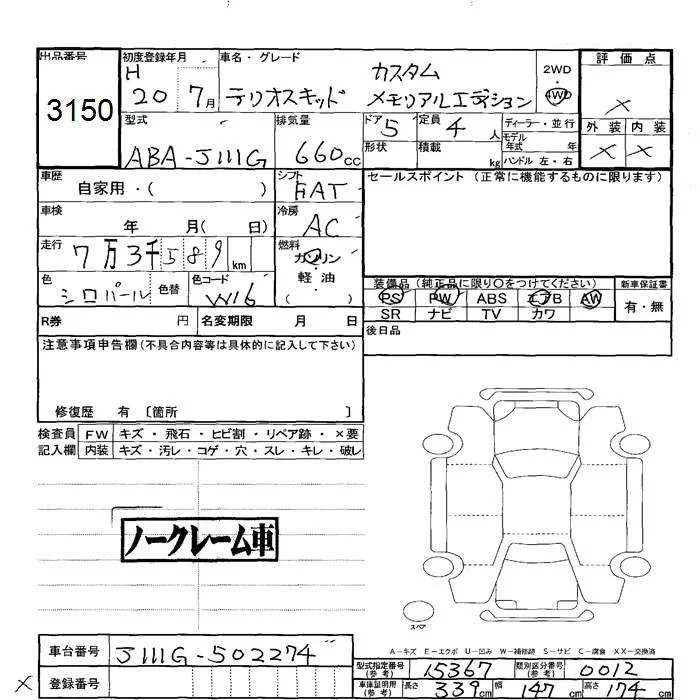 出品番号 初度登録年月 車名・グレード 評価点
3150 H 20 7月 テリオスキッド カスタム メモリアルエディション 2WD 4WD ×
型式 排気量 ドア 5 定員 4人 ディーラー・並行 外装 内装
ABA-J111G 660cc 形状 積載 kg モデル年式 年 × ×
ハンドル 左・右
車歴 自家用・( ) シフト FAT セールスポイント (正常に機能するものに限ります)
車検 年 月( 日) 冷房 AC
走行 7万3千589km 燃料 ガソリン・軽油 ( )
色 シロパール 色替 色コード W16
装備品 (純正品に限り〇をつけてください) 新車保証書
PS PW ABS エアB AW 有・無
SR ナビ TV カワ
R券 円 名変期限 月 日 後日品
注意事項申告欄 (不具合内容等は具体的に記入して下さい)
修復歴 有 〔箇所 〕
検査員 FW キズ・飛石・ヒビ割・リペア跡・×要
記入欄 内装 キズ・汚レ・コゲ・穴・スレ・キレ・破レ
ノークレーム車
スペア
A-キズ E-エクボ U-凹み W-補修跡 S-サビ C-腐食 XX-交換済
車台番号 J111G-502274 型式指定番号(参考) 15367 類別区分番号(参考) 0012
× 登録番号 車庫証明用(参考) 長さ 339cm 幅 147cm 高さ 174cm